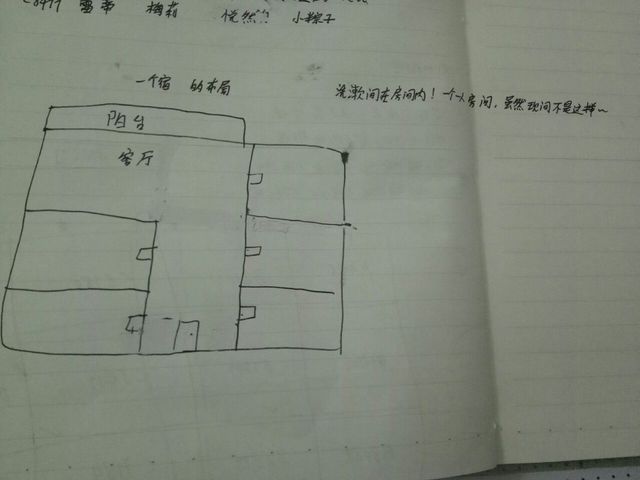 雪帝 梅莉 悦然 小粽子
一个宿 的布局
洗漱间在房间内！一个人房间，虽然现间不是这样~
阳台
客厅